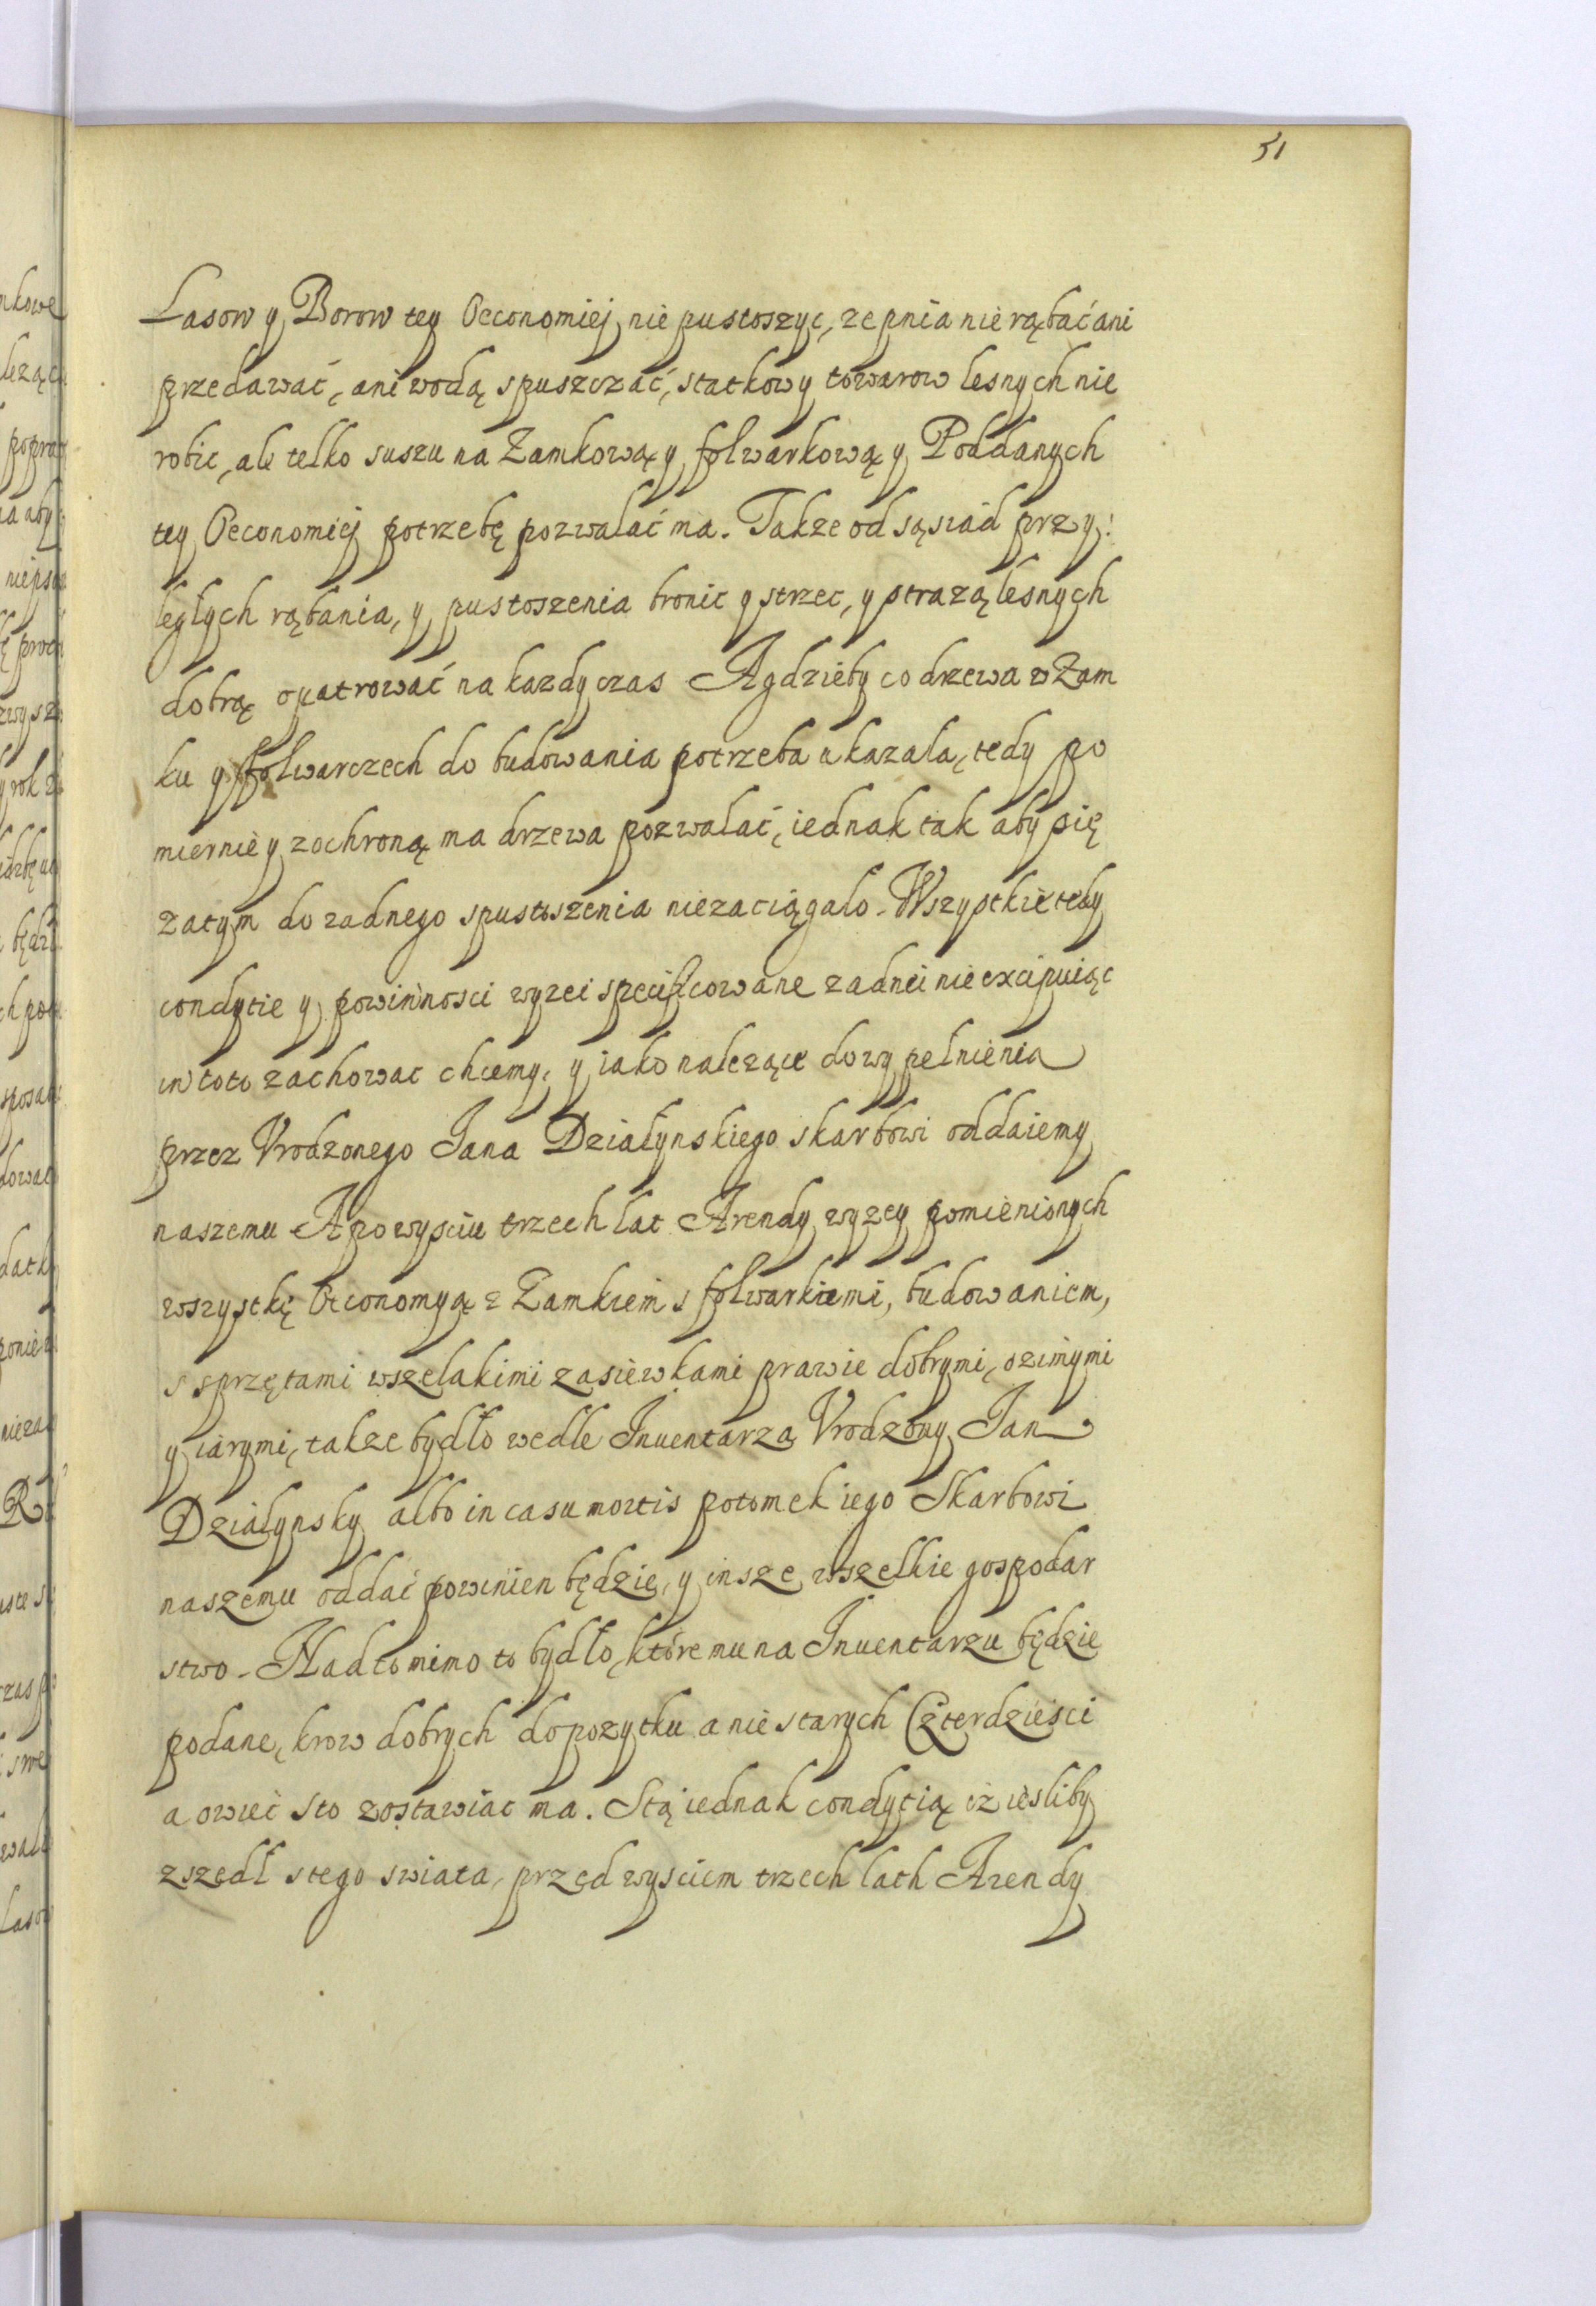 51
Lasow y Borow tey Oeconomiej nie pustoszyc, ze pnia nie rąbać ani
przedawać, ani wodą spuszczać, statkow y towarow lesnych nie
robic, ale telko suszu na Zamkową y folwarkową y Poddanych
tey Oeconomiej potrzebę pozwalać ma. Takze od sąsiad przy:
ległych rąbania, y pustoszenia bronic y strzec, y strazą lesnych
dobrą opatrować na kazdy czas A gdzieby co drzewa w Zam
ku y folwarczech do budowania potrzeba ukazala, tedy po
miernie y z ochroną ma drzewa pozwalać, iednak tak aby się
zatym do zadnego spustoszenia niezaciągało. Wszystkie tedy
condytie y powinnosci wyzei specificowane zadnei nie excipuiąc
in toto zachowac chcemy, y iako nalezące do wypelnienia
przez Vrodzonego Jana Działynskiego skarbowi oddaiemy
naszemu A po wysciu trzech lat Arendy wyzey pomienionych
wszystkę Oeconomyą z Zamkiem s folwarkiemi, budowaniem,
s sprzętami wszelakimi zasiewkami prawie dobrymi, ozimymi
y iarymi, takze bydło wedle Inuentarza Vrodzony Jan
Działynsky albo in casu mortis potomek iego Skarbowi
naszemu oddać powinien będzie, y insze wszelkie gospodar
stwo. Nad to mimo to bydło, które mu na Inuentarzu będzie
podane, krow dobrych do pozytku a nie starych Czterdziesci
a owiec sto zostawiac ma. S tą iednak condytią iż iesliby
zszedł s tego swiata, przed wysciem trzech lath Arendy